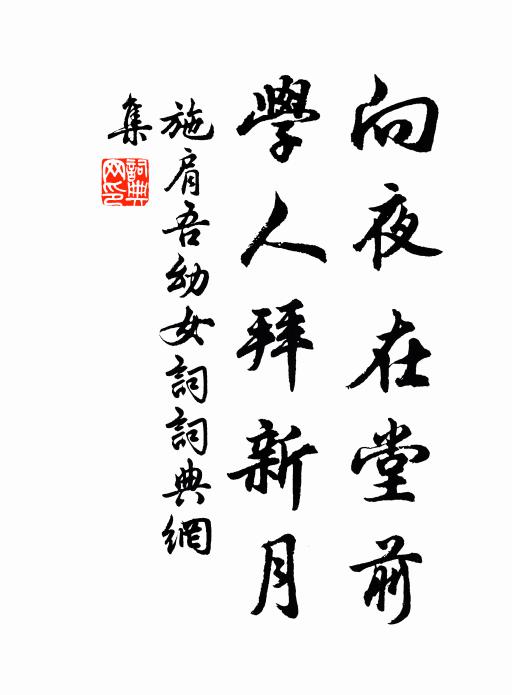 向夜在堂前
學人拜新月
施肩吾幼女詞詞典網
集
詞典网印